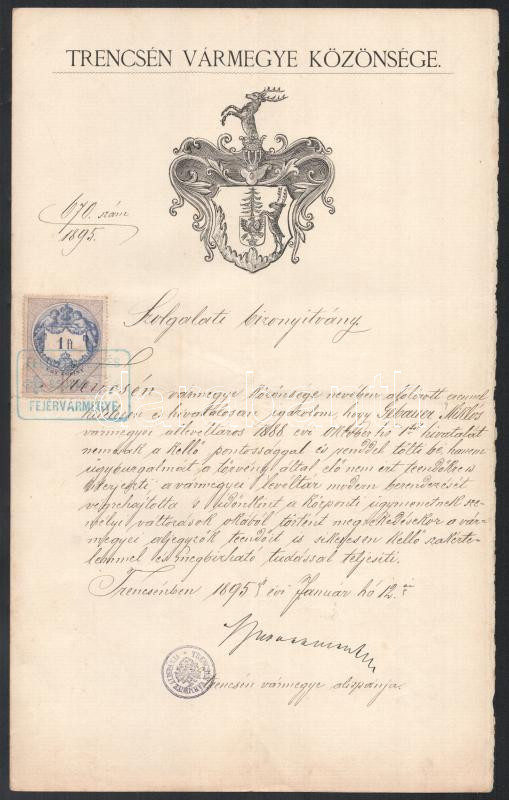 TRENCSÉN VÁRMEGYE KÖZÖNSÉGE.
670. szám
1895.
Szolgálati bizonyítvány.
1 ft
FEJÉRVÁRMEGYE
Trencsén vármegye közönsége nevében alólírott ezennel
hitelesen és hivatalosan igazolom, hogy Miklós
vármegyei allevéltáros 1888 évi Október hó hivatalát
nemcsak a kellő pontossággal és renddel tölti be, hanem
ügybuzgalmát a törvény által elő nem írt teendőkre is
kiterjeszti a vármegyei levéltár modern berendezését
végrehajtotta s időnként a központi ügymenetnek sze-
mélyi változások okából történt megakadásakor a vár-
megyei aljegyzők teendőit is sikeresen kellő szakérte-
lemmel és megbízható tudással teljesíti.
Trencsénben 1895 évi Január hó 12.
Trencsén vármegye alispánja.